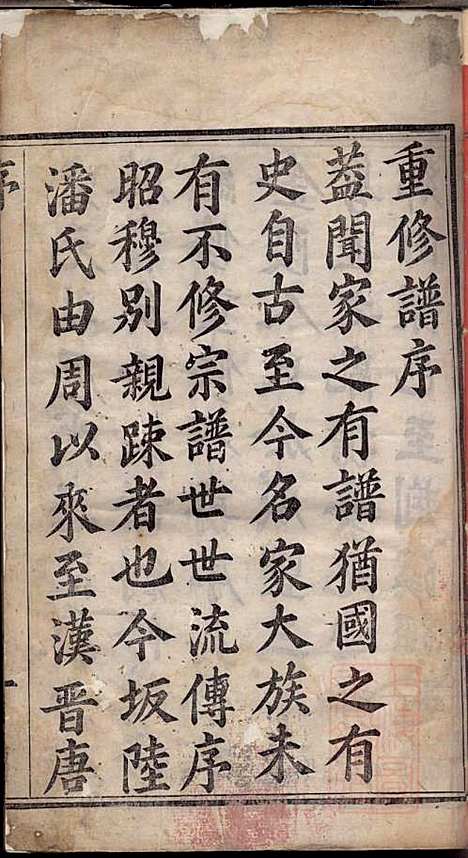 重修譜序
葢聞家之有譜猶國之有
史自古至今名家大族未
有不修宗譜世世流傳序
昭穆別親踈者也今坂陸
潘氏由周以來至漢晉唐
序 一